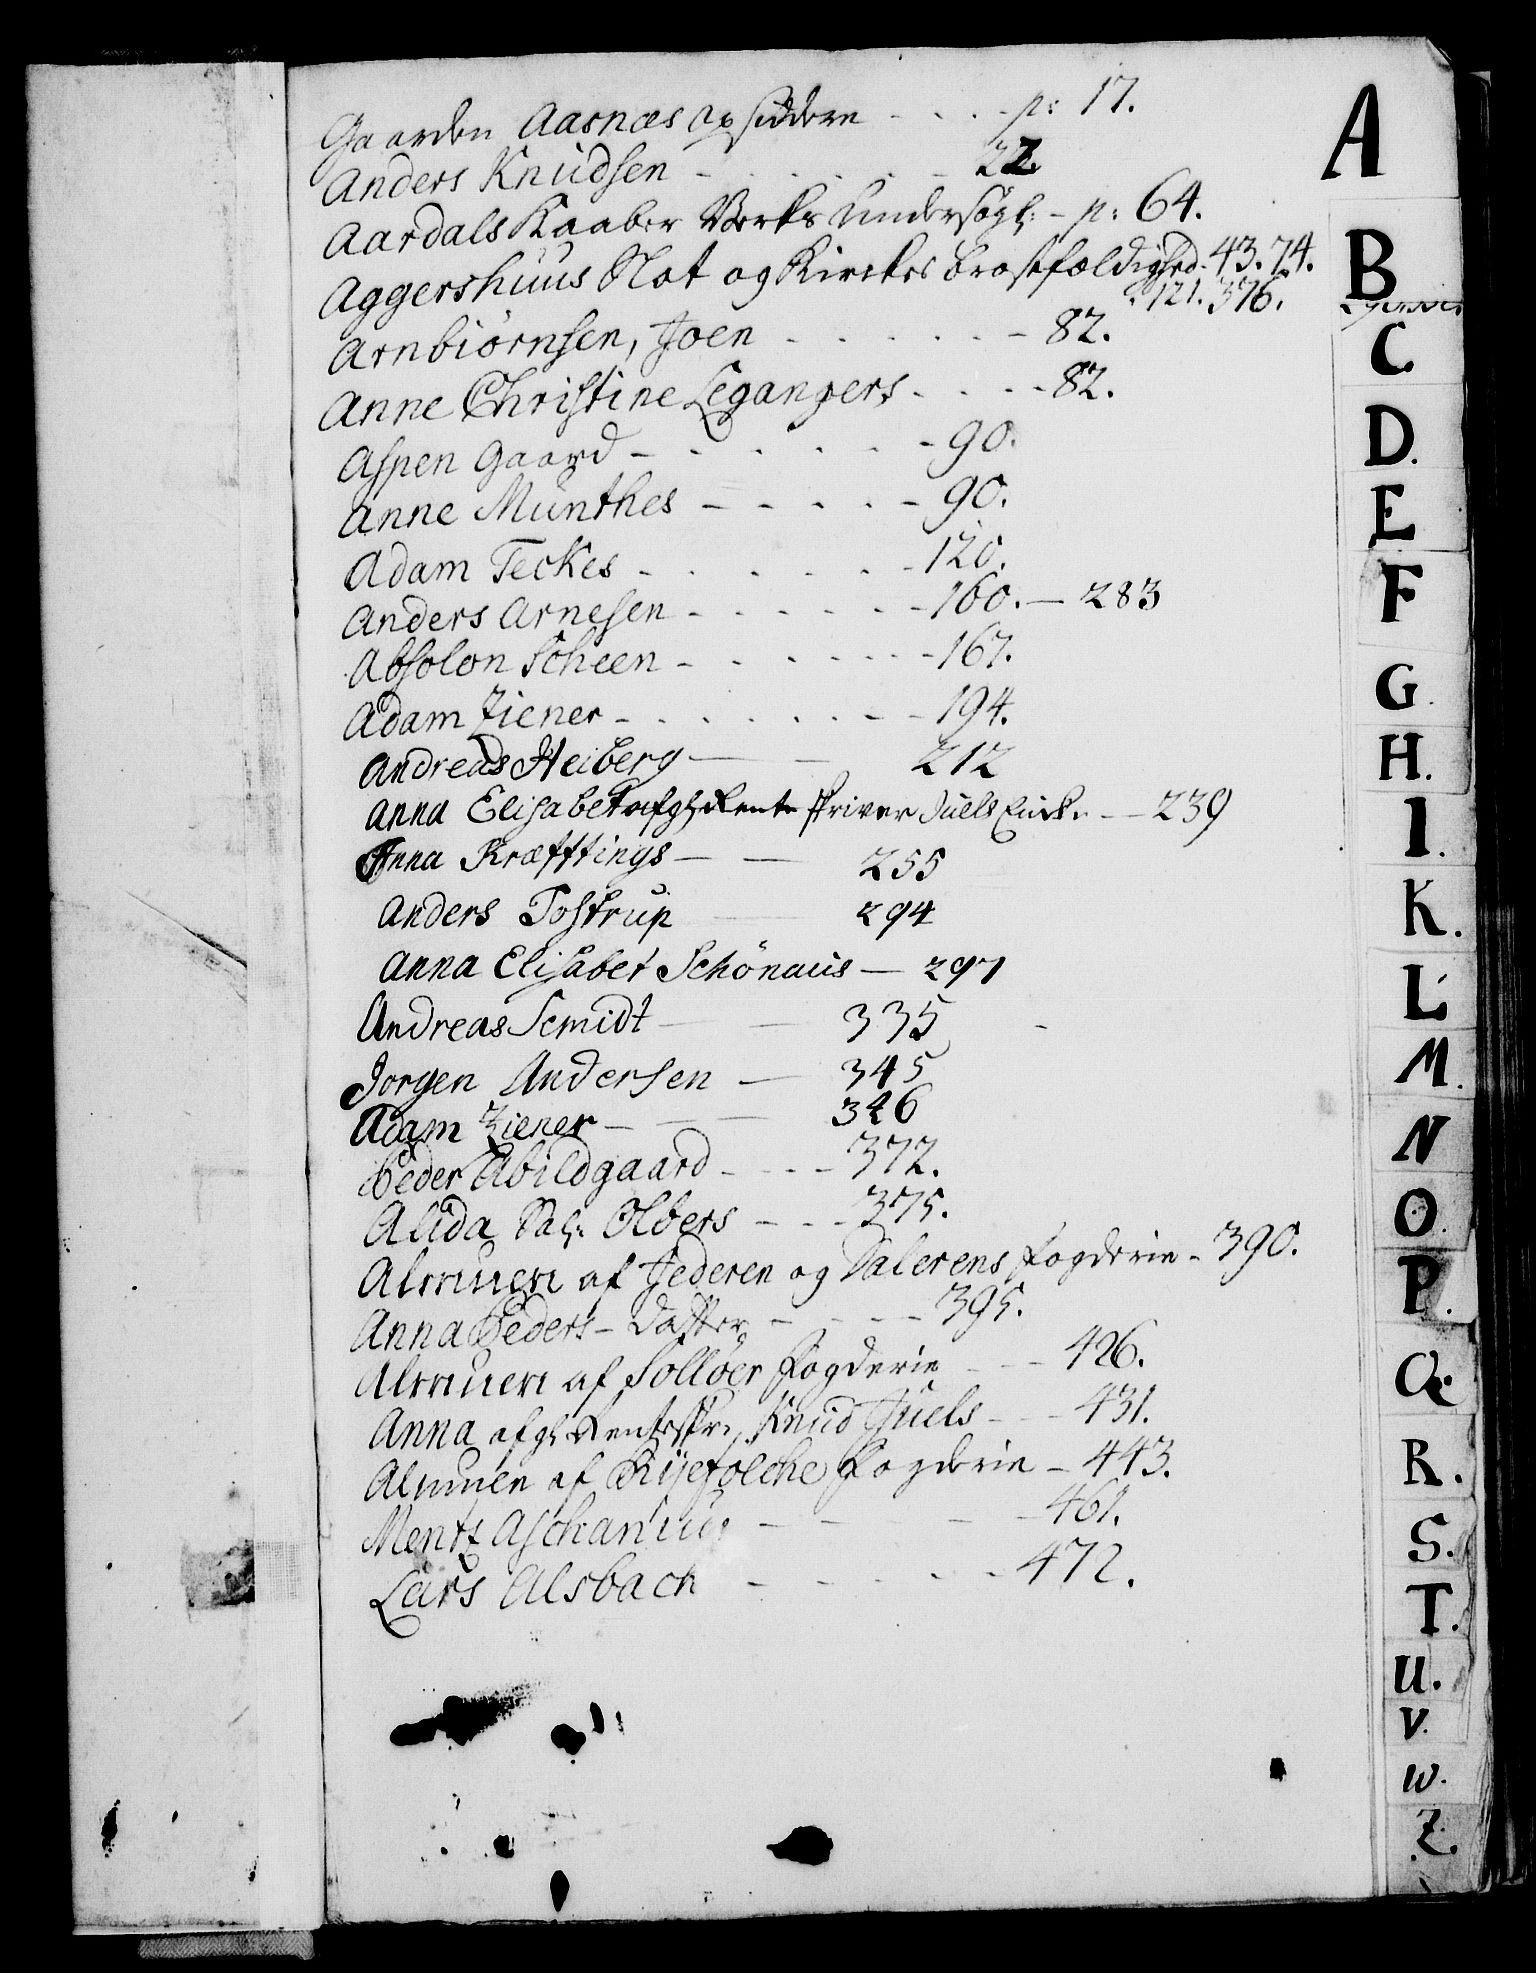 Gaarden Aarnæs Opsiddere - - - p: 17.
Anders Knudsen - - - - 22.
Aardals Kaaber Verks Undersøgl: - p: 64.
Aggershuus Slot og Kirckes brøstfældighed. 43. 74.
121. 376.
Arnbiørnsen, Joen - - - - - 82.
Anne Christine Legangers - - - - 82.
Aspen Gaard - - - - - - 90.
Anne Munthes - - - - - 90.
Adam Teckes - - - - - - 120.
Anders Arnesen - - - - - 160. — 283
Absolon Scheen - - - - - - 167.
Adam Ziener - - - - - - - 194.
Andreas Heiberg — — 212
Anna Elisabet afg: Rente skriver Juels Encke. — 239
Anna Kræfftings — — 255
Anders Tostrup — 294
Anna Elisabet Schönaus — 297
Andreas Scmidt — — 335
Jorgen Andersen — 345
Adam Ziener — — 346
Peder Abildgaard - - - - 372.
Alida Sal: Olbers - - - 375.
Almuen af Jederen og Dalerens fogderie - 390.
Anna Peders - Datter - - - - 395.
Almuen af Solløer fogderie - - - 426.
Anna afg: Renteskr: Knud Juels - - - 431.
Almuen af Ryefolcke Fogderie - 443.
Mentz Aschanius - - - - - 461.
Lars Alsbach - - - - - 472.
A
B
C
D.
E
F
G.
H.
I.
K.
L
M.
N
O
P.
Q.
R.
S.
T.
U.
V.
W.
Z.